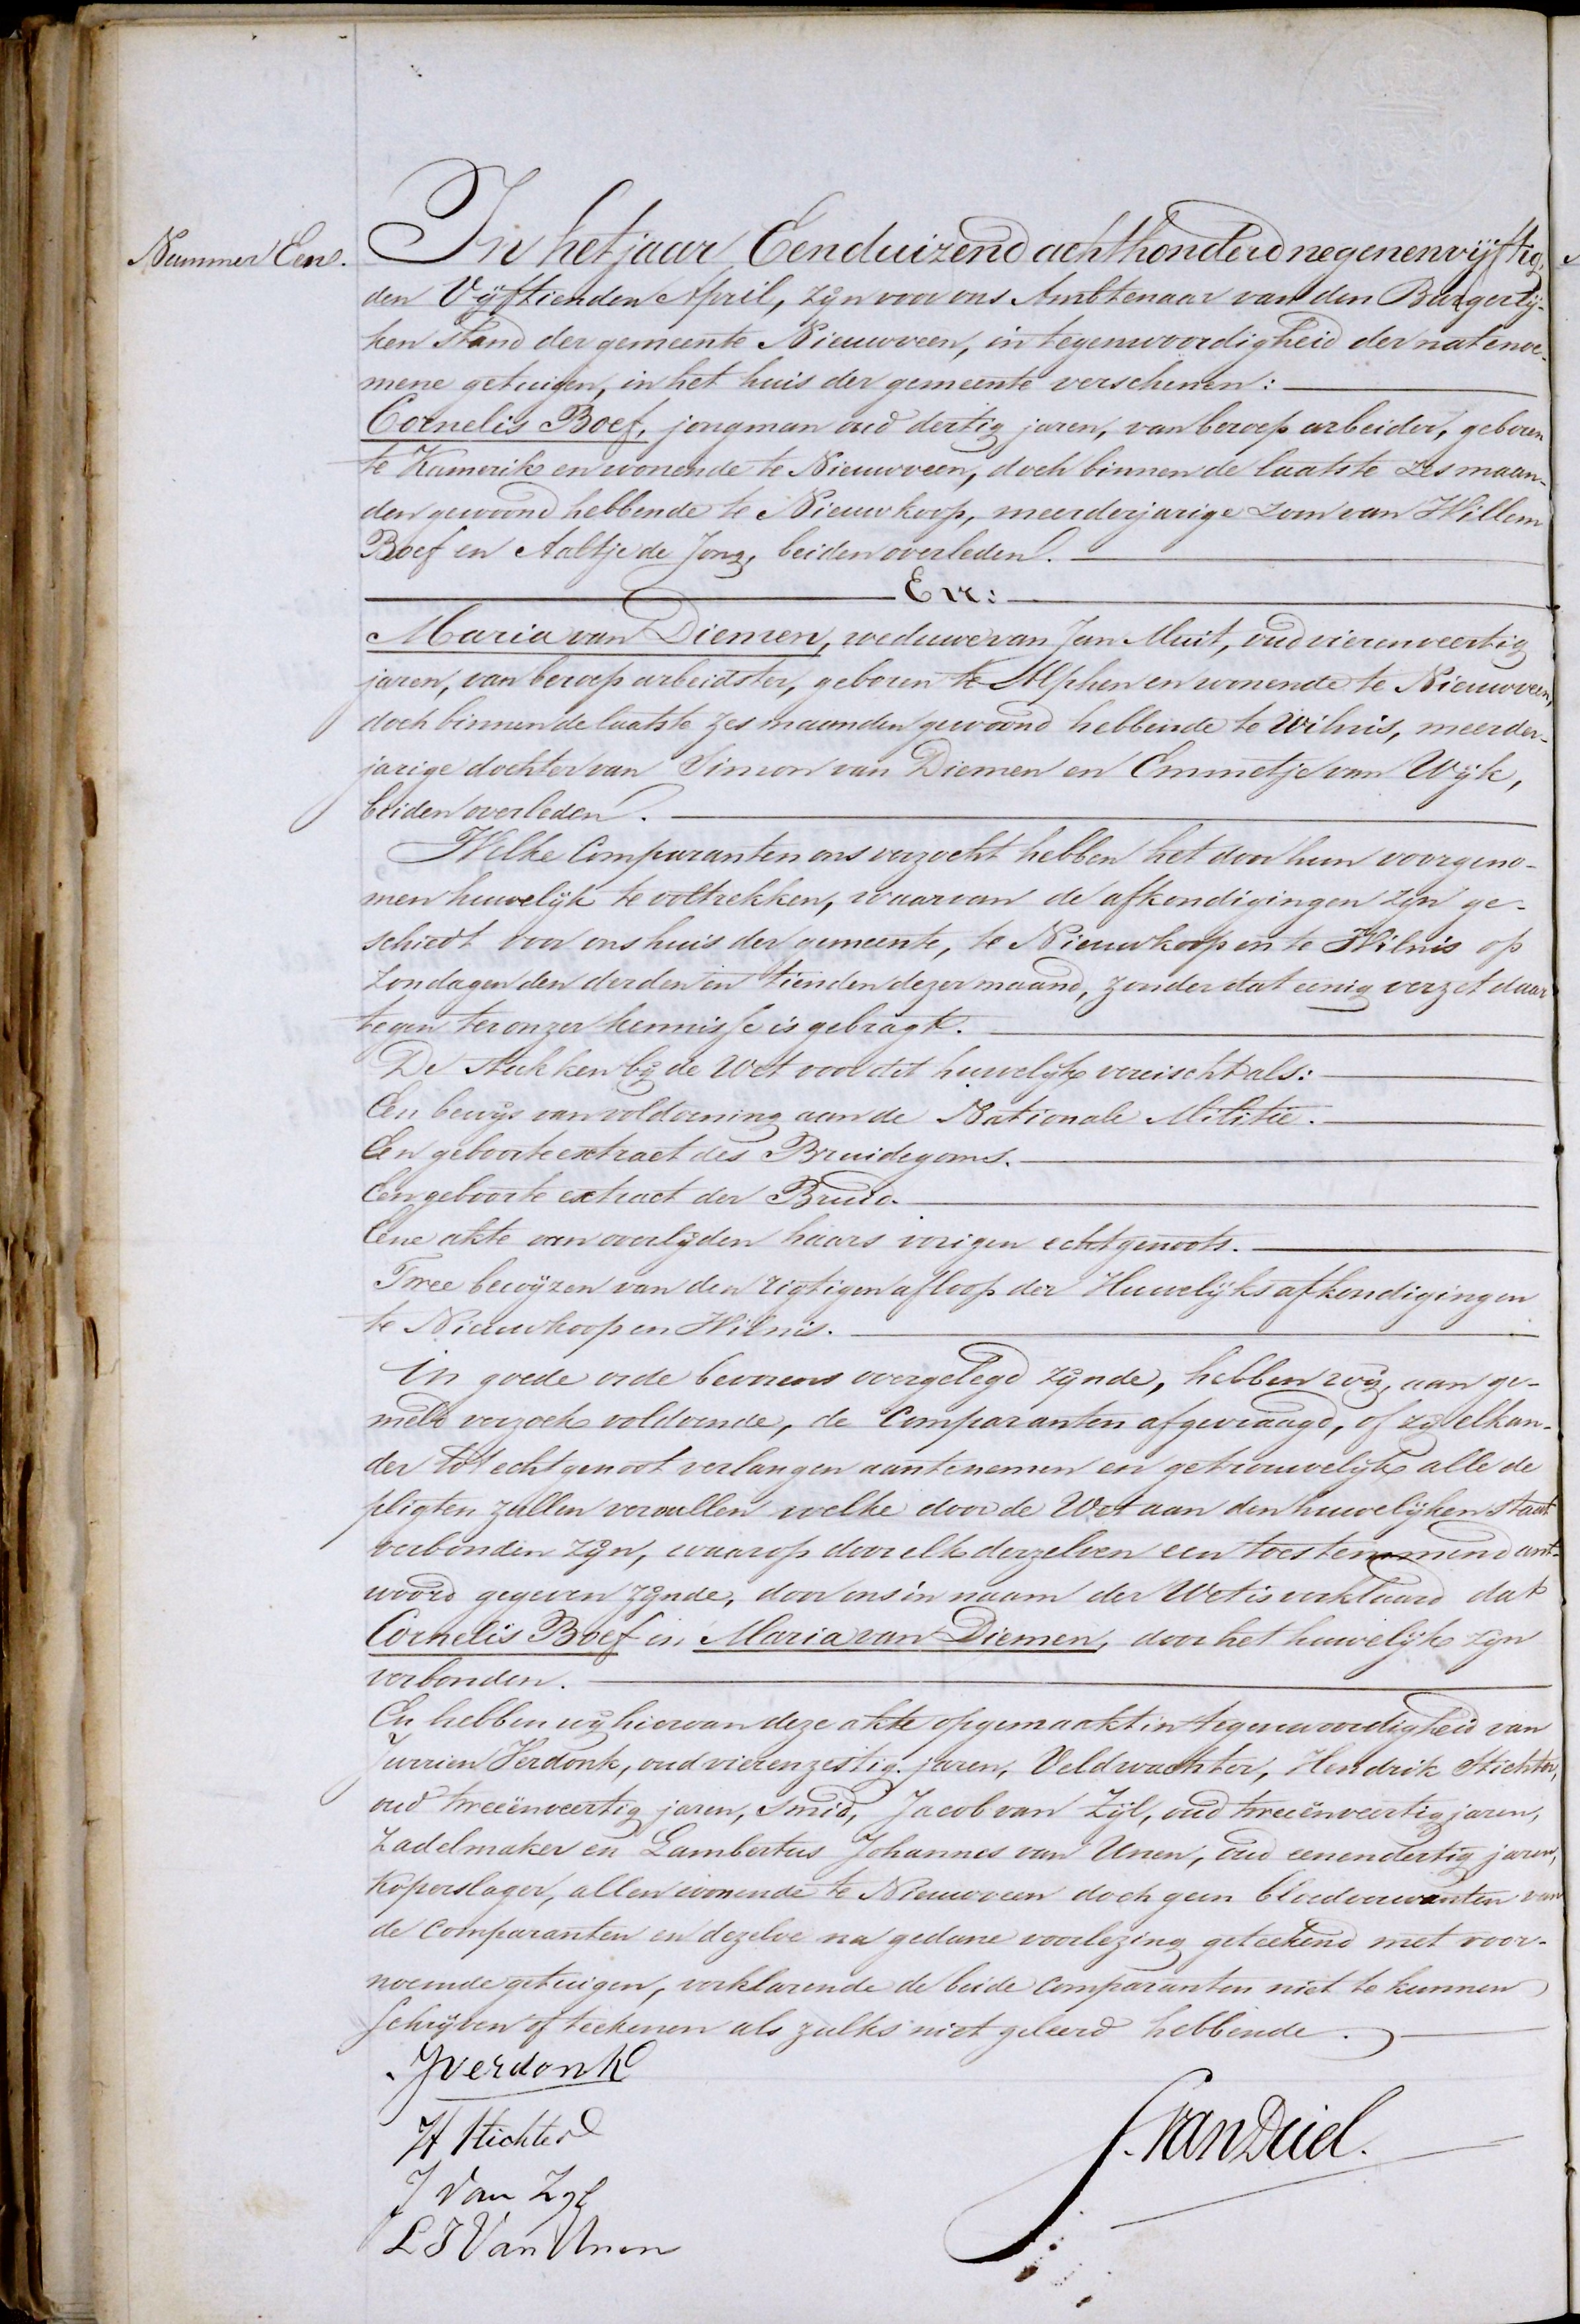 Nummer Een.
In het jaar Eenduizend achthonderd negenenvijftig,
den Vijftienden April, zijn voor ons Ambtenaar van den Burgerlij-
ken stand der gemeente Nieuwveen, in tegenwoordigheid der natenoe-
mene getuigen, in het huis der gemeente verschenen:
Cornelis Boef, jongman oud dertig jaren, van beroep arbeider, geboren
te Kamerik en wonende te Nieuwveen, doch binnen de laatste zes maan-
den gewoond hebbende te Nieuwkoop, meerderjarige zoon van Willem
Boef en Aaltje de Jong, beiden overleden.
En:
Maria van Diemen, weduwe van Jan Muit, oud vierenveertig
jaren, van beroep arbeidster, geboren te Alphen en wonende te Nieuwveen,
doch binnen de laatste zes maanden gewoond hebbende te Wilnis, meerder-
jarige dochter van Simon van Diemen en Emmetje van Wijk,
beiden overleden.
Welke Comparanten ons verzocht hebben het door hun voorgeno-
men huwelijk te voltrekken, waarvan de afkondigingen zijn ge-
schiedt voor ons huis der gemeente, te Nieuwkoop en te Wilnis op
Zondagen den derden en tienden dezer maand, zonder dat eenig verzet daar
tegen ter onzer kennisse is gebragt.
De stukken bij de Wet voor dit huwelijk vereischt als:
Een bewijs van voldoening aan de Nationale Militie.
Een geboorte extract des Bruidegoms.
Een geboorte extract der Bruid.
Eene akte van overlijden haars vorigen echtgenoots.
Twee bewijzen van den rigtigen afloop der Huwelijks afkondigingen
te Nieuwkoop en Wilnis.
in goede orde bevorens overgelegd zijnde, hebben wij, aan ge-
meld verzoek voldoende, de Comparanten afgevraagd, of zij elkan-
der tot echtgenoot verlangen aantenemen en getrouwelijk alle de
pligten zullen vervullen welke door de Wet aan den huwelijken staat
verbonden zijn, waarop door elk derzelven een toestemmend ant-
woord gegeven zijnde, door ons in naam der Wet is verklaard dat
Cornelis Boef en Maria van Diemen, door het huwelijk zijn
verbonden.
En hebben wij hiervan deze akte opgemaakt in tegenwoordigheid van
Jurrien Verdonk, oud vierenzestig jaren, Veldwachter, Hendrik Stichter,
oud tweeënveertig jaren, Smid, Jacob van Zijl, oud tweeënveertig jaren,
Zadelmaker en Lambertus Johannes van Unen, oud eenendertig jaren,
Koperslager, allen wonende te Nieuwveen doch geen bloedverwanten van
de comparanten en dezelve na gedane voorlezing geteekend met voor-
noemde getuigen, verklarende de beide comparanten niet te kunnen
schrijven of teekenen als zulks niet geleerd hebbende.
J Verdonk
H Stichter
J Van Zyl
L J Van Unen